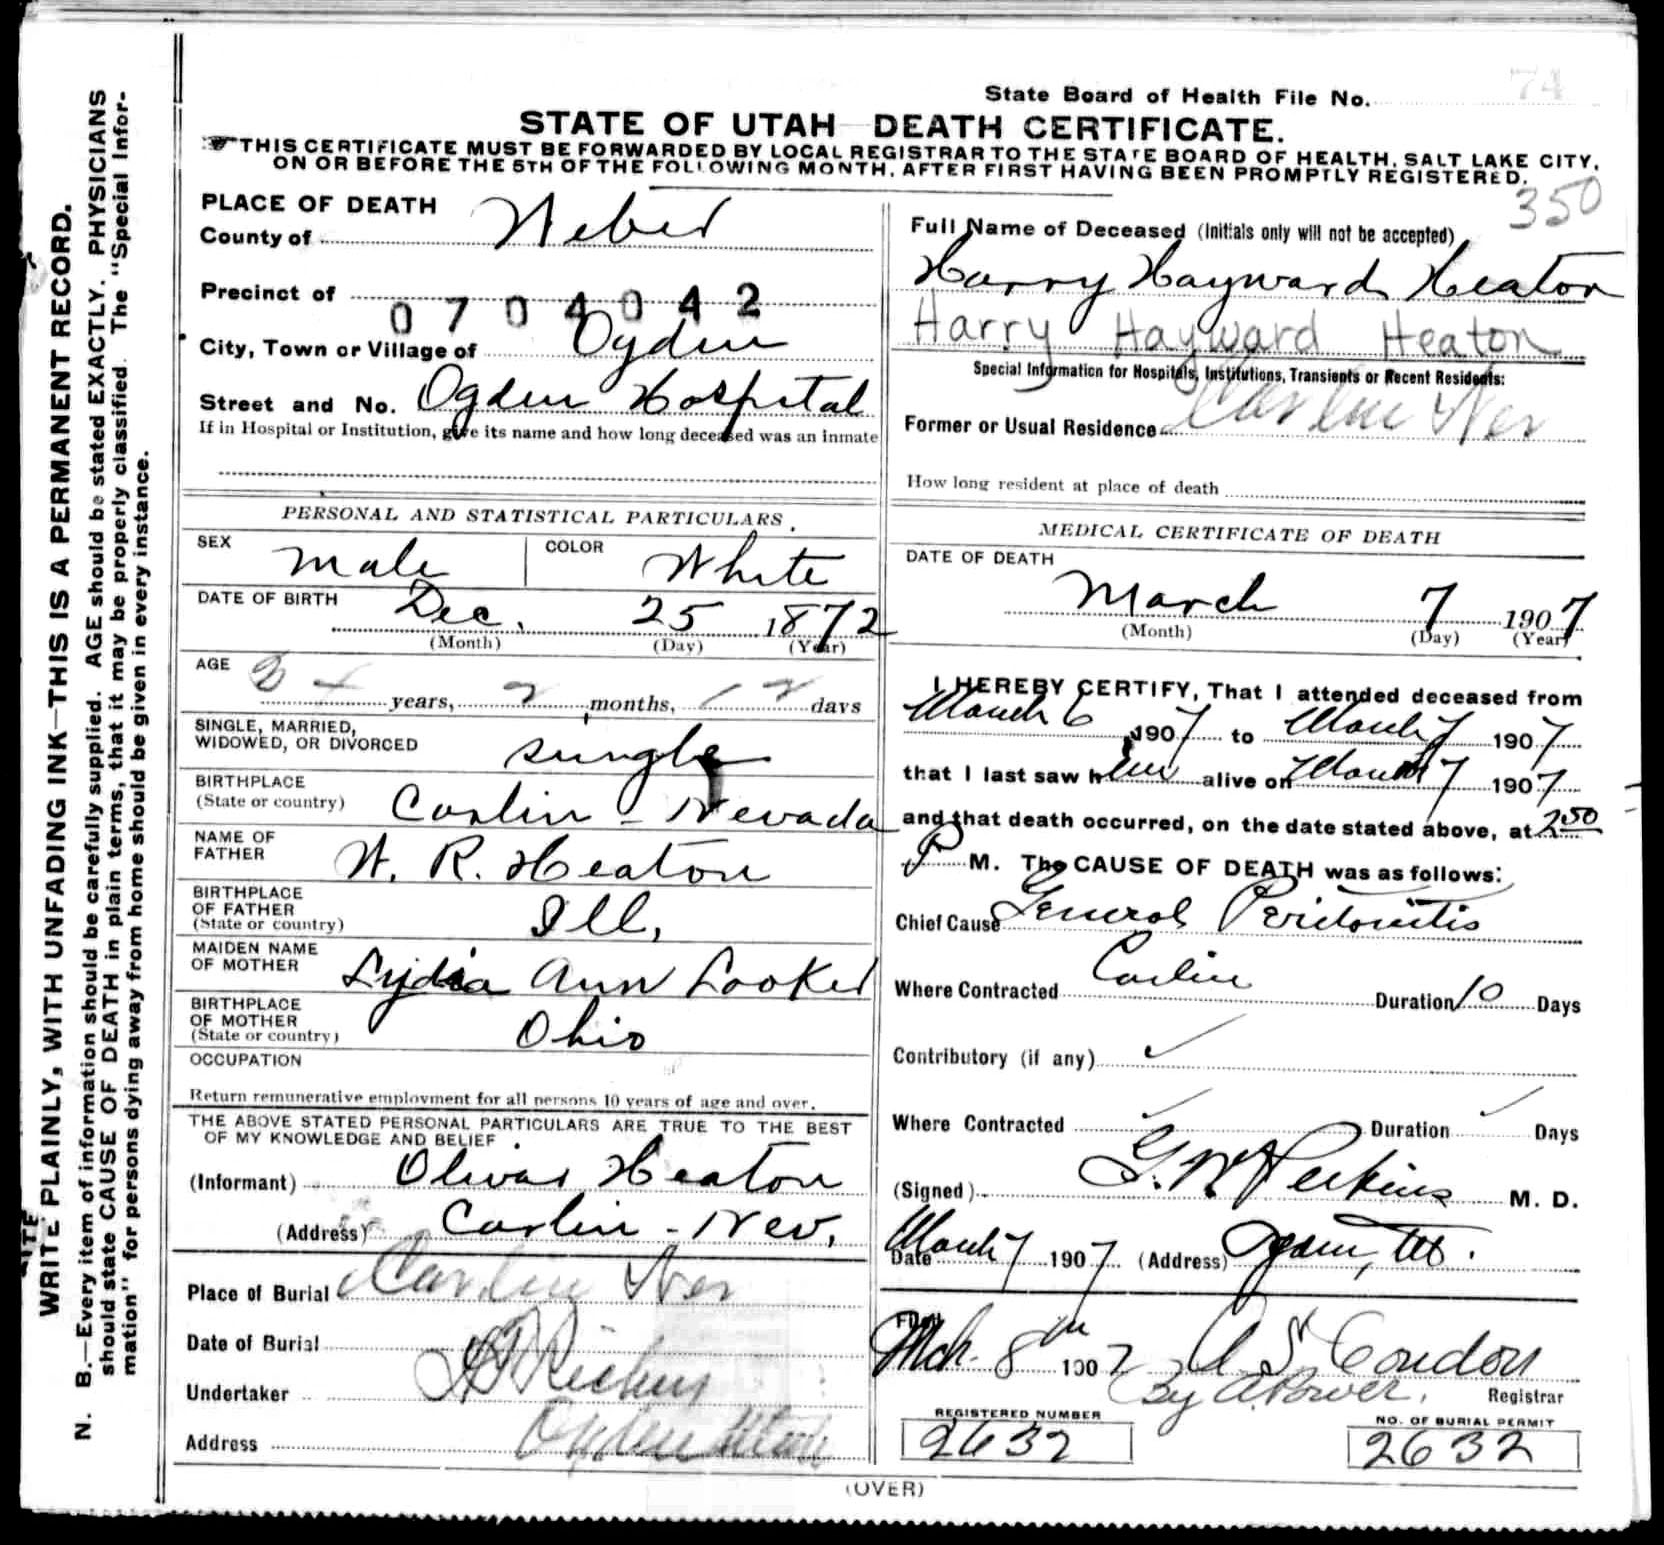 State Board of Health File No. 74
STATE OF UTAH DEATH CERTIFICATE.
THIS CERTIFICATE MUST BE FORWARDED BY LOCAL REGISTRAR TO THE STATE BOARD OF HEALTH, SALT LAKE CITY,
ON OR BEFORE THE 5TH OF THE FOLLOWING MONTH, AFTER FIRST HAVING BEEN PROMPTLY REGISTERED.
350
WRITE PLAINLY, WITH UNFADING INK—THIS IS A PERMANENT RECORD.
N. B.—Every item of information should be carefully supplied. AGE should be stated EXACTLY. PHYSICIANS
should state CAUSE OF DEATH in plain terms, that it may be properly classified. The "Special Infor-
mation" for persons dying away from home should be given in every instance.
PLACE OF DEATH
County of Weber
Precinct of
0704042
City, Town or Village of Ogden
Street and No. Ogden Hospital
If in Hospital or Institution, give its name and how long deceased was an inmate
PERSONAL AND STATISTICAL PARTICULARS.
SEX Male COLOR White
DATE OF BIRTH Dec. 25 1872
(Month) (Day) (Year)
AGE years, 2 months, 12 days
SINGLE, MARRIED,
WIDOWED, OR DIVORCED single
BIRTHPLACE
(State or country) Carlin - Nevada
NAME OF
FATHER W. R. Heaton
BIRTHPLACE
OF FATHER
(State or country) Ill.
MAIDEN NAME
OF MOTHER Lydia Ann Looker
BIRTHPLACE
OF MOTHER
(State or country) Ohio
OCCUPATION
Return remunerative employment for all persons 10 years of age and over.
THE ABOVE STATED PERSONAL PARTICULARS ARE TRUE TO THE BEST
OF MY KNOWLEDGE AND BELIEF.
(Informant) Oliver Heaton
(Address) Carlin - Nev.
Place of Burial Carlin Nev
Date of Burial
Undertaker
Address Ogden Utah
Full Name of Deceased (Initials only will not be accepted)
Harry Hayward Heaton
Harry Hayward Heaton
Special Information for Hospitals, Institutions, Transients or Recent Residents:
Former or Usual Residence Carlin Nev
How long resident at place of death
MEDICAL CERTIFICATE OF DEATH
DATE OF DEATH
March 7 1907
(Month) (Day) (Year)
I HEREBY CERTIFY, That I attended deceased from
March 6 1907 to March 7 1907
that I last saw him alive on March 7 1907
and that death occurred, on the date stated above, at 2 50
P M. The CAUSE OF DEATH was as follows:
Chief Cause General Peritonitis
Where Contracted Carlin Duration 10 Days
Contributory (if any)
Where Contracted Duration Days
(Signed) G. W. Perkins M. D.
Date March 7 1907 (Address) Ogden, Ut.
Filed
Mch. 8th 1907 Condon
By A. Power. Registrar
REGISTERED NUMBER
2632
NO. OF BURIAL PERMIT
2632
(OVER)